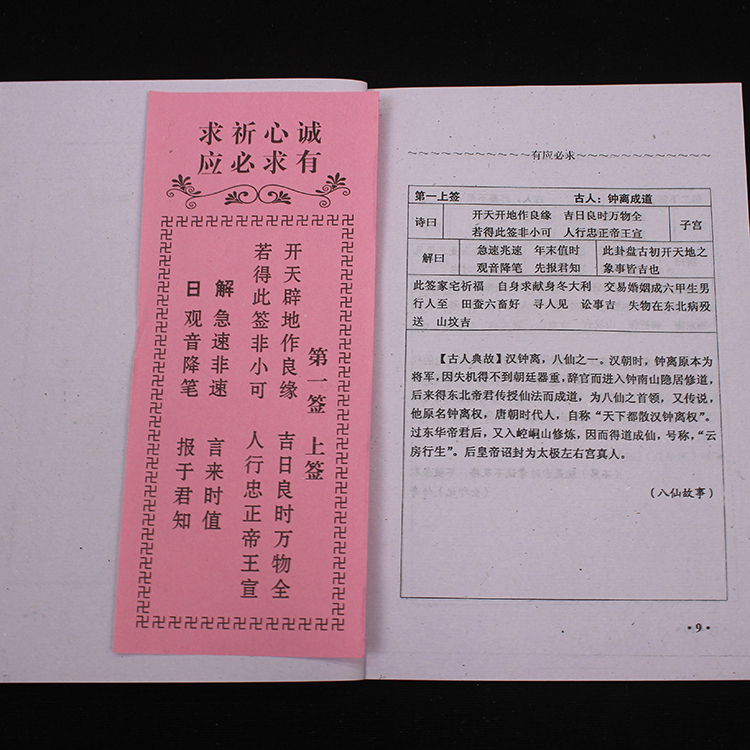 诚心祈求
有求必应
第一签 上签
开天辟地作良缘 吉日良时万物全
若得此签非小可 人行忠正帝王宣
解 急速非速 言来时值
日 观音降笔 报于君知
有应必求
第一上签 古人：钟离成道
诗曰
开天开地作良缘 吉日良时万物全
若得此签非小可 人行忠正帝王宣
子宫
解曰
急速兆速 年末值时
观音降笔 先报君知
此卦盘古初开天地之
象事皆吉也
此签家宅祈福 自身求献身冬大利 交易婚姻成六甲生男
行人至 田蚕六畜好 寻人见 讼事吉 失物在东北病殁
送 山坟吉
【古人典故】汉钟离，八仙之一。汉朝时，钟离原本为
将军，因失机得不到朝廷器重，辞官而进入钟南山隐居修道，
后来得东北帝君传授仙法而成道，为八仙之首领，又传说，
他原名钟离权，唐朝时代人，自称“天下都散汉钟离权”。
过东华帝君后，又入崆峒山修炼，因而得道成仙，号称，“云
房行生”。后皇帝诏封为太极左右宫真人。
（八仙故事）
·9·